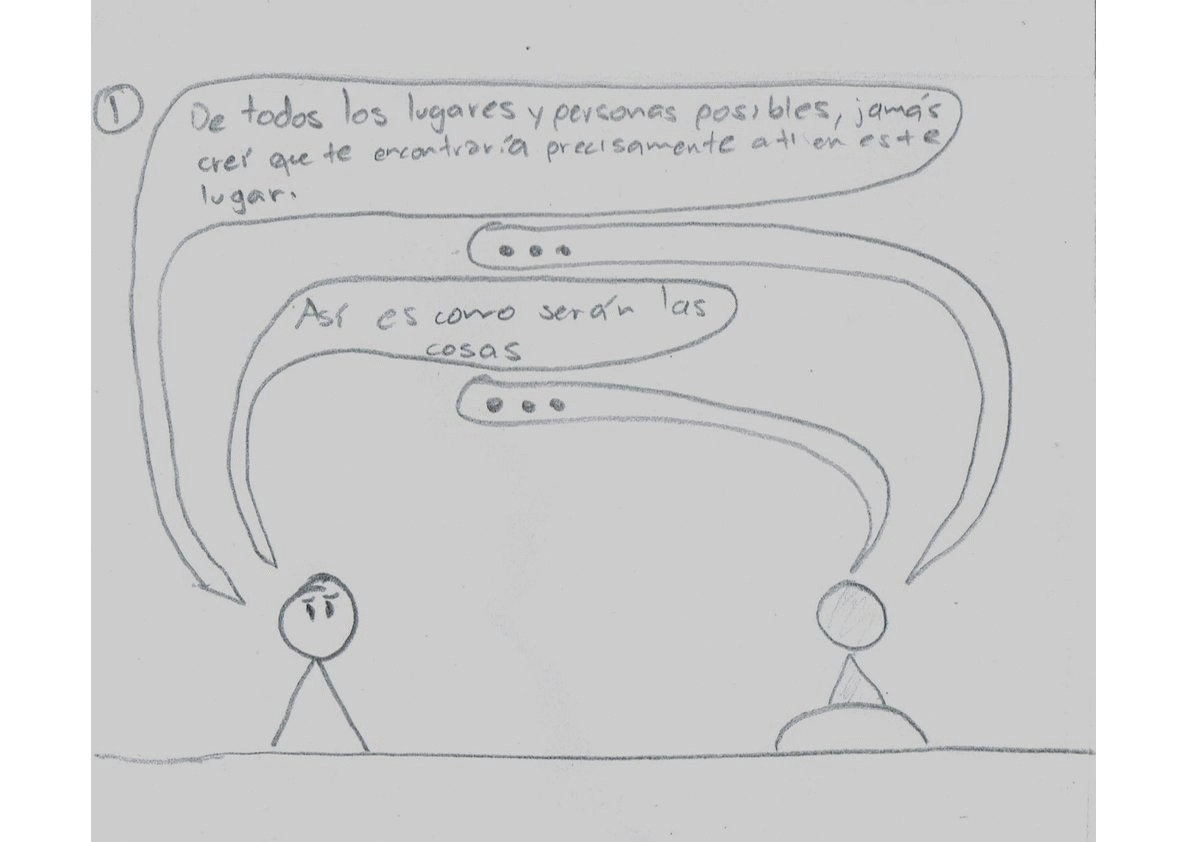 1
De todos los lugares y personas posibles, jamás
creí que te encontraría precisamente a ti en este
lugar.
...
Así es como serán las
cosas
...